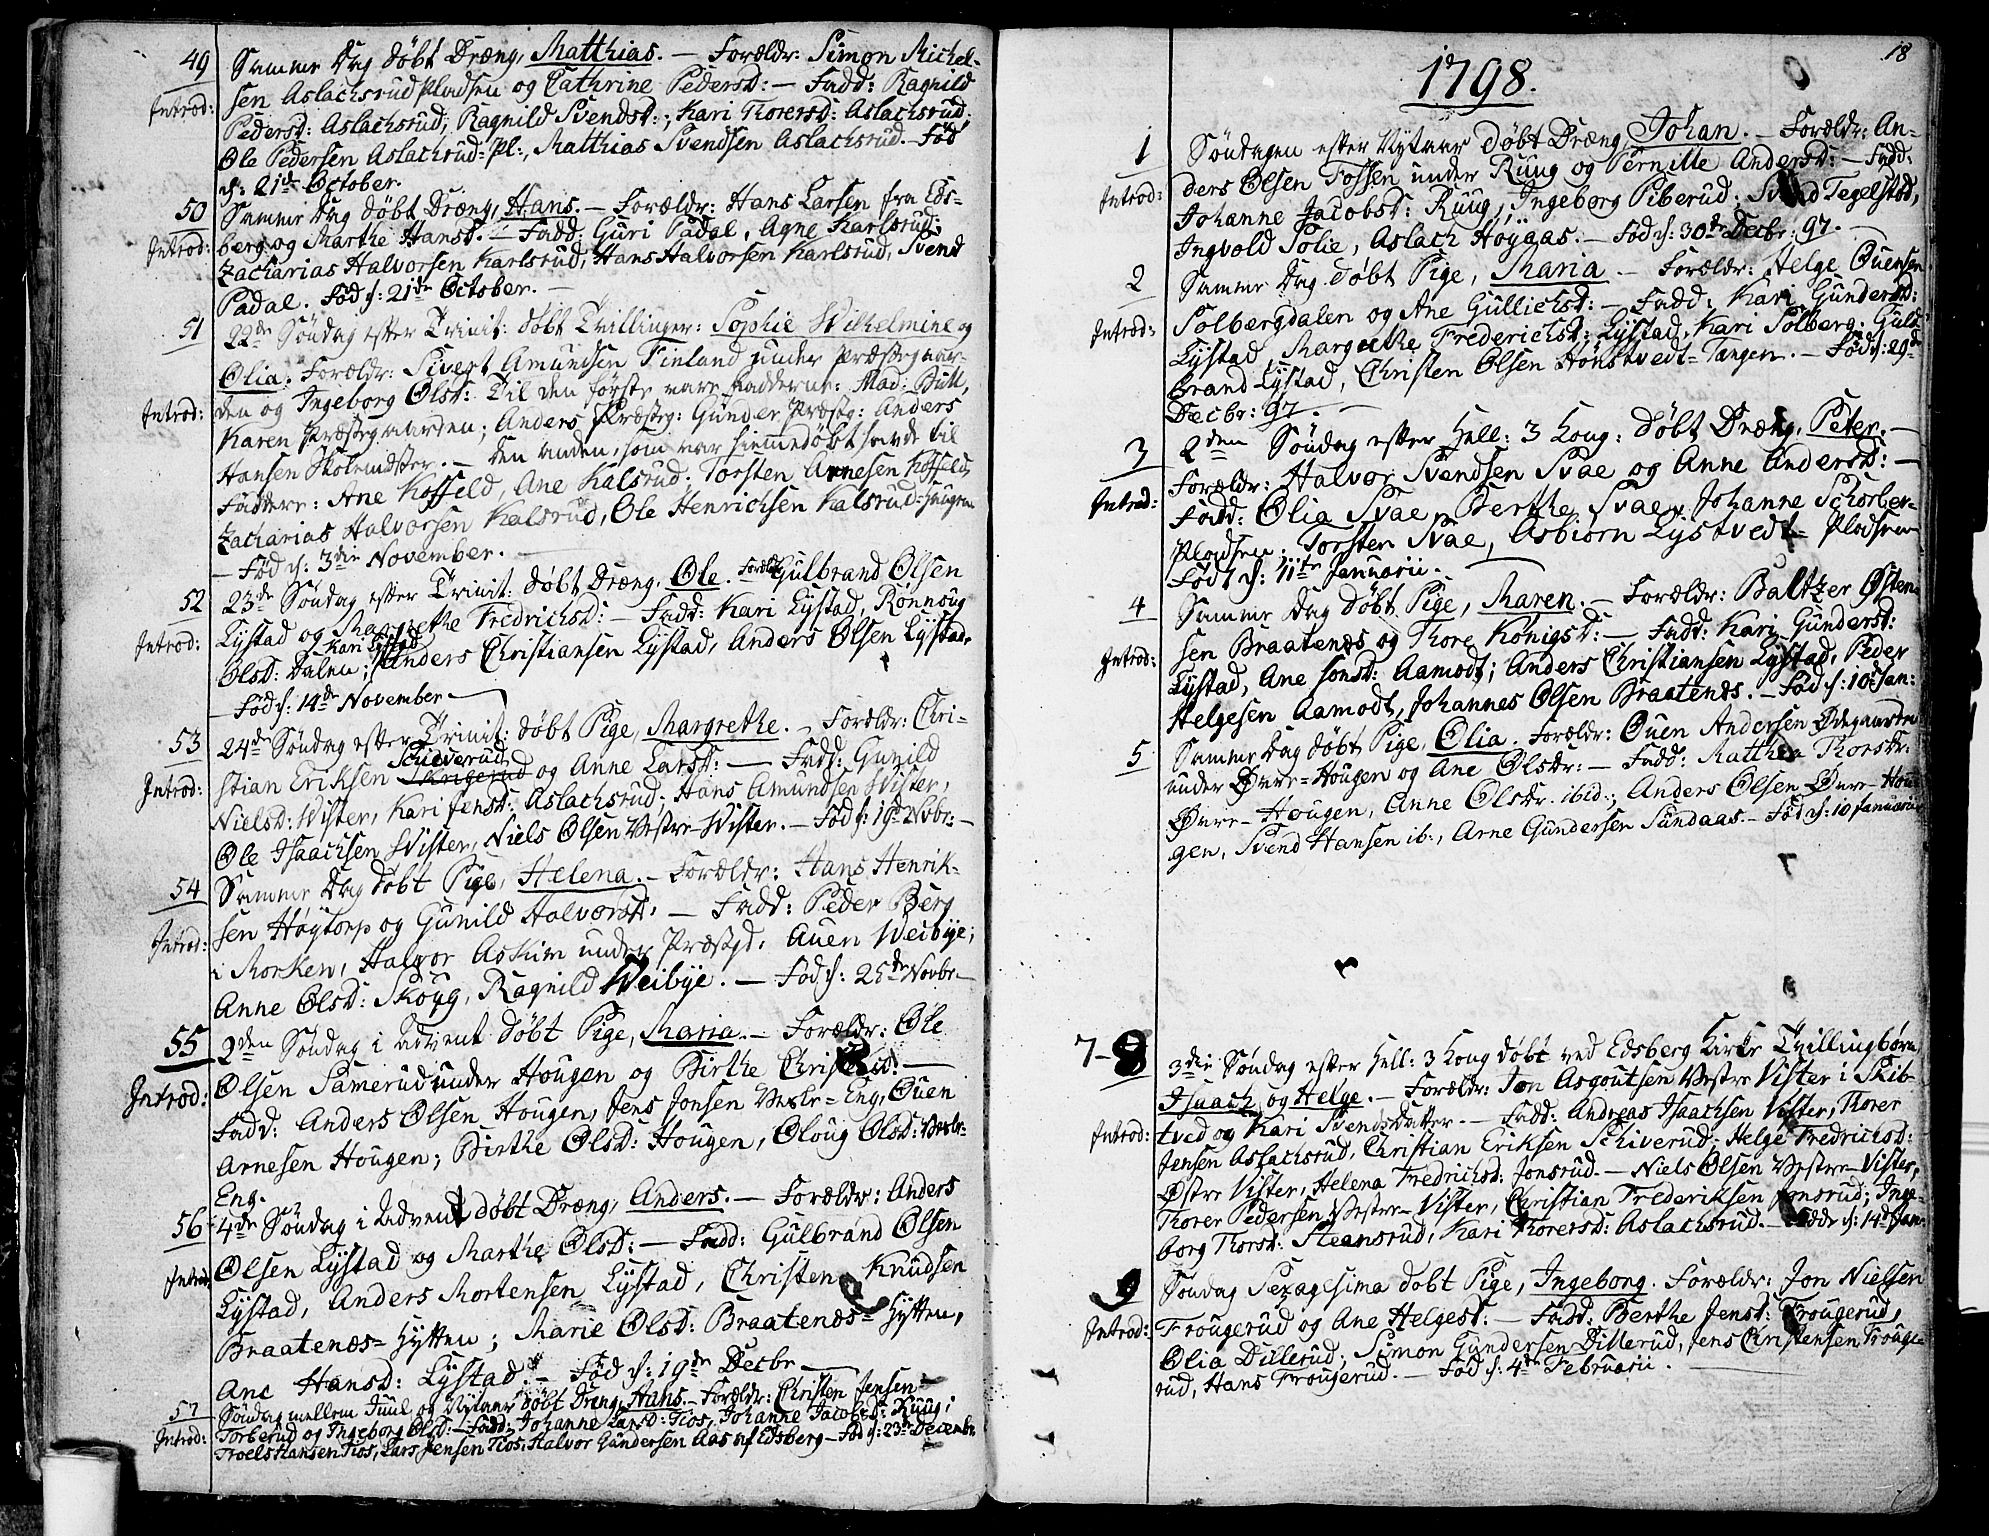 49 Samme Dag døbt Dræng, Matthias. — Forældr: Simon Michel-
Introd: sen Aslachsrudpladsen og Cathrine Pedersd: — Fadd: Ragnild
Pedersd: Aslachsrud, Ragnild Svendsd:, Kari Thorersd: Aslachsrud;
Ole Pedersen Aslachsrud-Pl:, Matthias Svendsen Aslachsrud. — Fød
d: 21de October.
50 Samme Dag døbt Dræng, Hans. — Forældr: Hans Larsen fra Eds-
Introd: berg og Marthe Hansd. — Fadd: Guri Padal, Agne Karlsrud;
Zacharias Halvorsen Karlsrud, Hans Halvorsen Karlsrud, Svend
Padal. Fød d: 21de October. —
51 22de Søndag efter Trinit: døbt Tvillinger: Sophie Wilhelmine og
Olia. Forældr: Sivert Amundsen Finland under Præstegaar-
Introd: den og Ingeborg Olsd: Til den første vare Fadderne: Mad: Bull,
Karen Præstegaarden; Anders Præstg: Gunder Præstg: Anders
Hansen Skolemester. — Den anden, som var hjemmedøbt havde til
Faddere: Ane Koffeld, Ane Kalsrud, Torsten Arnesen Koffeld,
Zacharias Halvorsen Kalsrud, Ole Henrichsen Kalsrud-haugen
— Fød d: 3die November. —
52 23de Søndag efter Trinit: døbt Dræng, Ole. Forældr: Gulbrand Olsen
Introd: Lystad og Margrethe Fredrichsd: — Fadd: Kari Lystad, Rønnoug
Olsd: Dalen; Kari Lystad Anders Christiansen Lystad, Anders Olsen Lystad.
— Fød d: 14de November —
53 24de Søndag efter Trinit: døbt Pige, Margrethe. — Forældr: Chri-
Introd: stian Eriksen Schieverud og Anne Larsd: — Fadd: Gunild
Nielsd: Wister, Kari Jensd: Aslachsrud; Hans Amundsen Wister,
Ole Isaachsen Wister, Niels Olsen Vestre Wister. — Fød d: 19de Novbr. —
54 Samme Dag døbt Pige, Helena. — Forældr: Hans Henrik-
Introd: sen Høytorp og Gunild Halvorsd: — Fadd: Peder Berg
i Morken, Halvor Askim under Præstgd, Auen Weibye;
Anne Olsd: Skoug, Ragnild Weibye. — Fød d: 25de Novbr —
55 2den Søndag i Advent døbt Pige, Maria. — Forældr: Ole
Introd: Olsen Samerud under Hougen og Birthe Christensd. —
Fadd: Anders Olsen Hougen, Jens Jonsen Vestr-Eng, Ouen
Arnesen Hougen; Birthe Olsd: Hougen, Oloug Olsd: Vestr-
Eng.
56 4de Søndag i Advent døbt Dræng, Anders. — Forældr: Anders
Introd: Olsen Lystad og Marthe Olsd: — Fadd: Gulbrand Olsen
Lystad, Anders Mortensen Lystad, Christen Knudsen
Braatenæs-Hytten; Marie Olsd: Braatenæs-Hytten,
Ane Hansd: Lystad. — Fød d: 19de Decbr —
57 Søndag mellem Juul og Nytaar døbt Dræng, Hans. — Forældr: Christen Jensen
Introd: Torberud og Ingeborg Olsd: — Fadd: Johanne Larsd: Tios, Johanne Jacobsd: Ruug;
Troels Hansen Tios, Lars Jensen Tios, Halvor Gundersen Aas af Edsberg — Fød d: 23de Decembr.
18
1798.
1 Søndagen efter Nytaar døbt Dræng, Johan. — Forældr: An-
Introd: ders Olsen Fossen under Ruug og Pernille Andersd: — Fadd:
Johanne Jacobsd: Ruug, Ingeborg Piberud; Svend Tegelstad,
Ingvold Solie, Aslach Høyaas. — Fød d: 30te Decbr: 97. —
2 Samme Dag døbt Pige, Maria — Forældr: Helge Ouensen
Introd: Solbergdalen og Ane Gullichsd: — Fadd: Kari Gundersd:
Lystad, Margrethe Frederichsd: Lystad, Kari Solberg; Guld-
brand Lystad, Christen Olsen Hønstvedt-Tangen. — Fød d: 29de
Decbr: 97. —
3 2den Søndag efter Hell: 3 Kong: døbt Dræng, Peter. —
Introd: Forældr: Halvor Svendsen Svae og Anne Andersd: —
Fadd: Olia Svae, Berthe Svae, Johanne Schorber-
Pladsen; Torsten Svae, Asbiørn Lystvedt-Pladsen
Født d: 11te Januarii.
4 Samme Dag døbt Pige, Maren. — Forældr: Baltzer Østen-
Introd: sen Braatenæs og Thore Kønigsd: — Fadd: Kari Gundersd:
Lystad, Ane Jonsd: Aamodt; Anders Christiansen Lystad, Peder
Helgesen Aamodt, Johannes Olsen Braatenæs. — Fød d: 10de Jan:
5 Samme Dag døbt Pige, Olia. Forældr: Ouen Andersen Ødegaarden
under Øvre-Hougen og Ane Olsdr: — Fadd: Matthea Thorsdr:
Øvre-Hougen, Anne Olsdr. ibid:, Anders Olsen Øvre-Hou-
gen, Svend Hansen ib:, Arne Gundersen Sundaas. — Fød d: 10 Januarii
7-8 3die Søndag efter Hell: 3 Kong døbt ved Edsberg Kirke Tvillingbørn
Isaach og Helge. — Forældr: Jon Asgoutsen Vestre Wister i Skib-
Introd: tved og Kari Svendsdatter. — Fadd: Andreas Isaachsen Wister, Thorer
Jensen Aslachsrud, Christian Eriksen Schiverud; Helge Fredrichsd:
Østre Wister, Helena Fredrichsd: Jonsrud. — Niels Olsen Vestre-Wister,
Thorer Pedersen Vestre-Wister, Christian Frederiksen Jonsrud; Inge-
borg Thorsd: Steensrud, Kari Thorersd: Aslachsrud. — Fødde d: 14de Jan:
9 Søndag Sexagesima døbt Pige, Ingeborg. Forældr: Jon Nielsen
Introd: Frougerud og Ane Helgesd: — Fadd: Berthe Jensd: Frougerud,
Olia Dillerud; Simon Gundersen Dillerud, Jens Christensen Frouge-
rud, Hans Frougerud. — Fød d: 4de Februarii. —